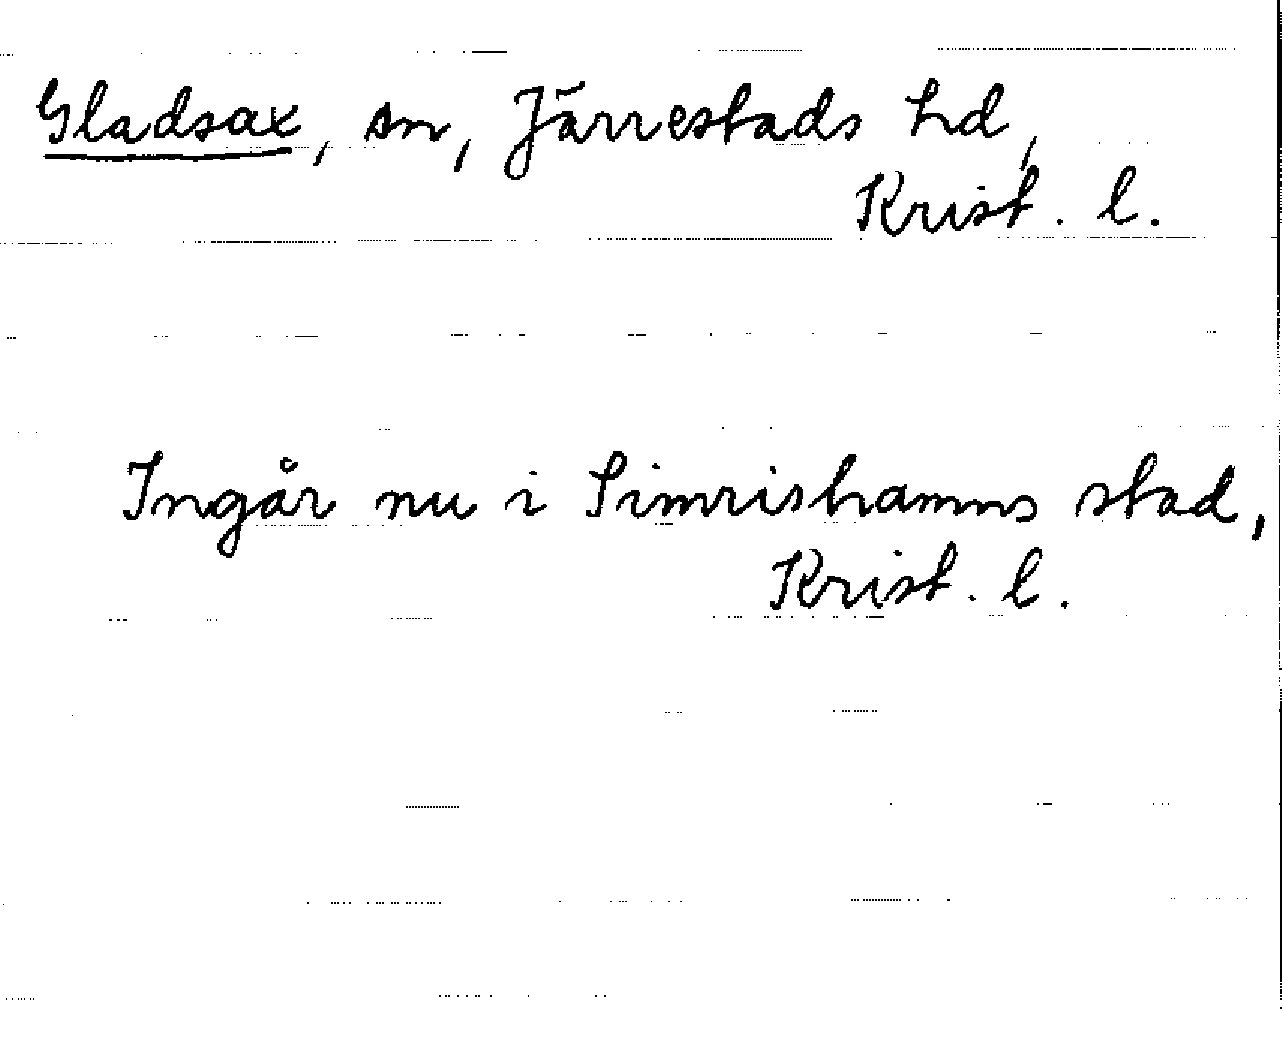 Gladsax, sn, Järrestads hd,
Krist. l.
Ingår nu i Simrishamns stad,
Krist. l.